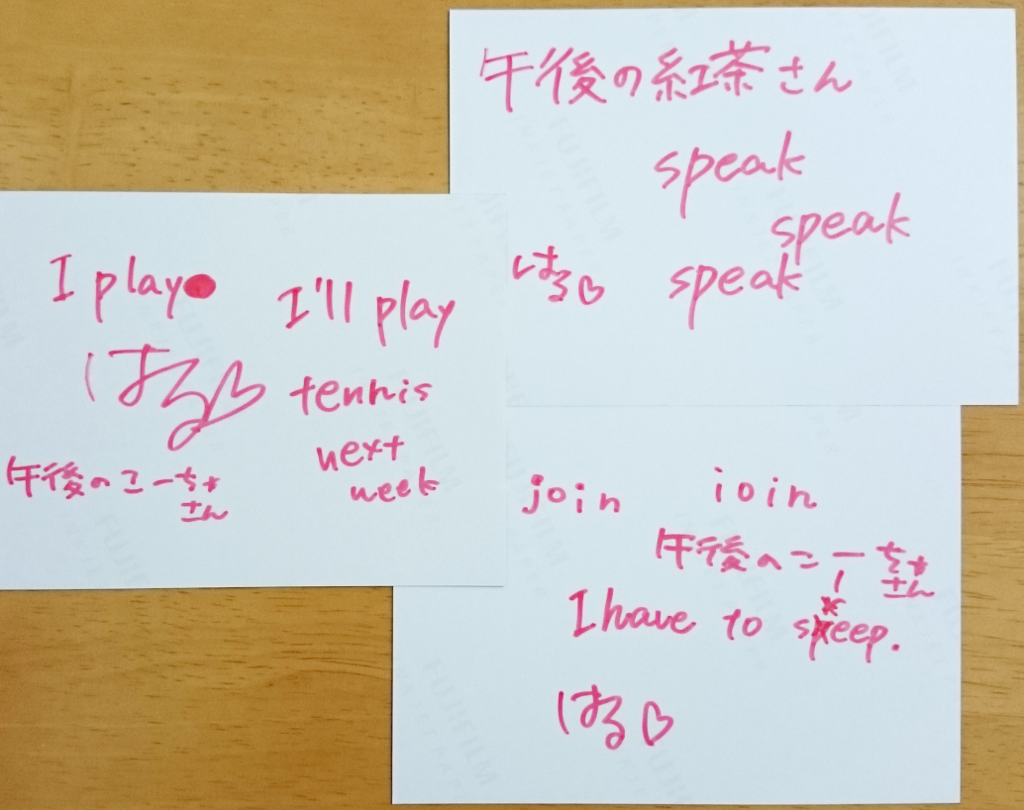 午後の紅茶さん
speak
speak
はる♡ speak
I play
I'll play
はる♡
tennis
午後のこーちゃ
さん
next
week
join ioin
午後のこーちゃ
さん
I have to sleep.
はる♡